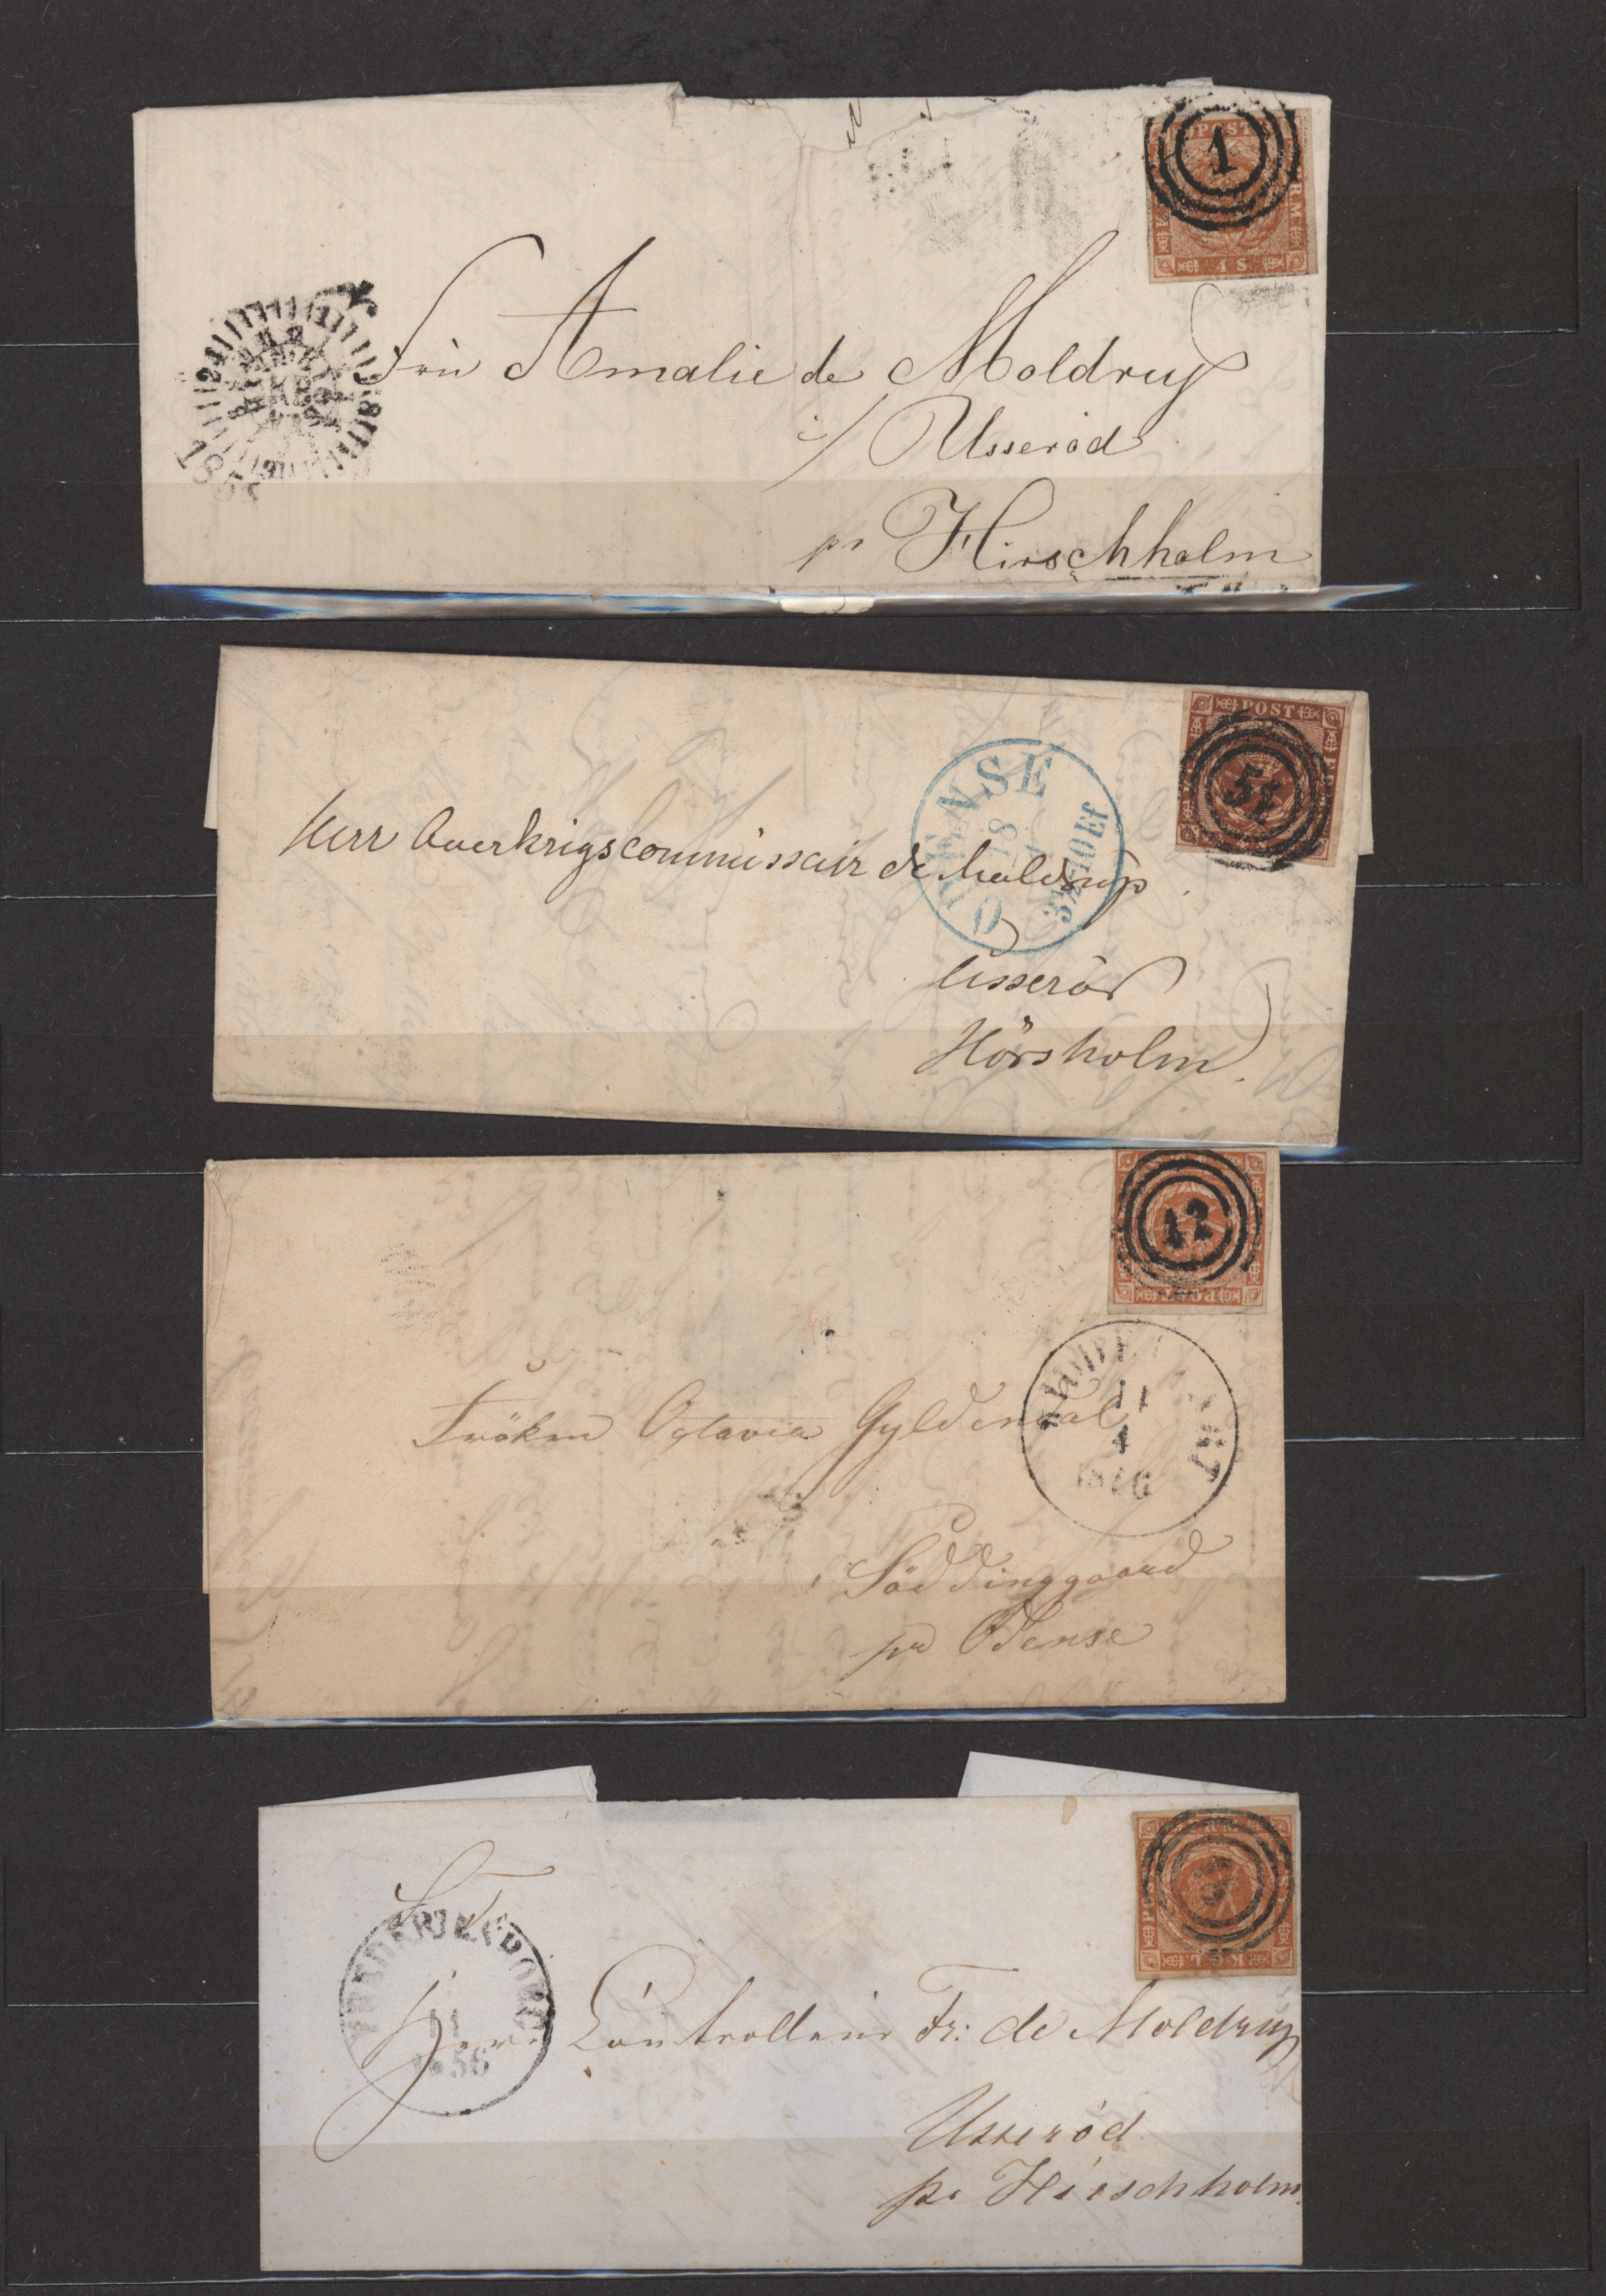 1
4 S
Frü Amalie de Moldrup
i/ Usseröd
pr Hirschholm
POST
51
ODENSE
18
3½-10 Ef
Herr Overkrigscommissair de Moldrup
Usseröd
Hörsholm
12
11
4
Fröken Octavia Gyldendal
Söddinggaard
pr Odense
S. T.
11
1856
Herr Controlleur Fr: de Moldrup
Usseröd
pr Hirschholm